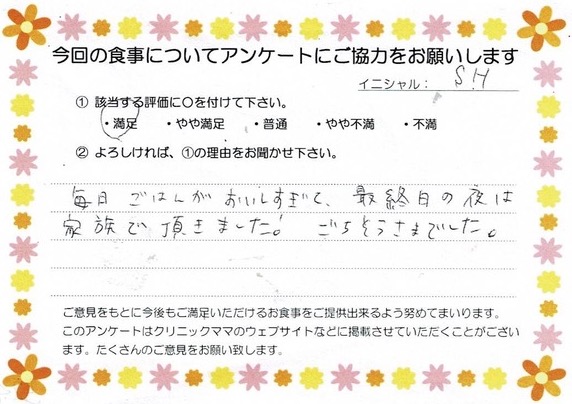 今回の食事についてアンケートにご協力をお願いします
イニシャル： S.H
① 該当する評価に〇を付けて下さい。
・満足 ・やや満足 ・普通 ・やや不満 ・不満
② よろしければ、①の理由をお聞かせ下さい。
毎日 ごはんが おいしすぎて、 最終日の夜は
家族で頂きました! ごちそうさまでした。
ご意見をもとに今後もご満足いただけるお食事をご提供出来るよう努めてまいります。
このアンケートはクリニックママのウェブサイトなどに掲載させていただくことがござい
ます。たくさんのご意見をお願い致します。